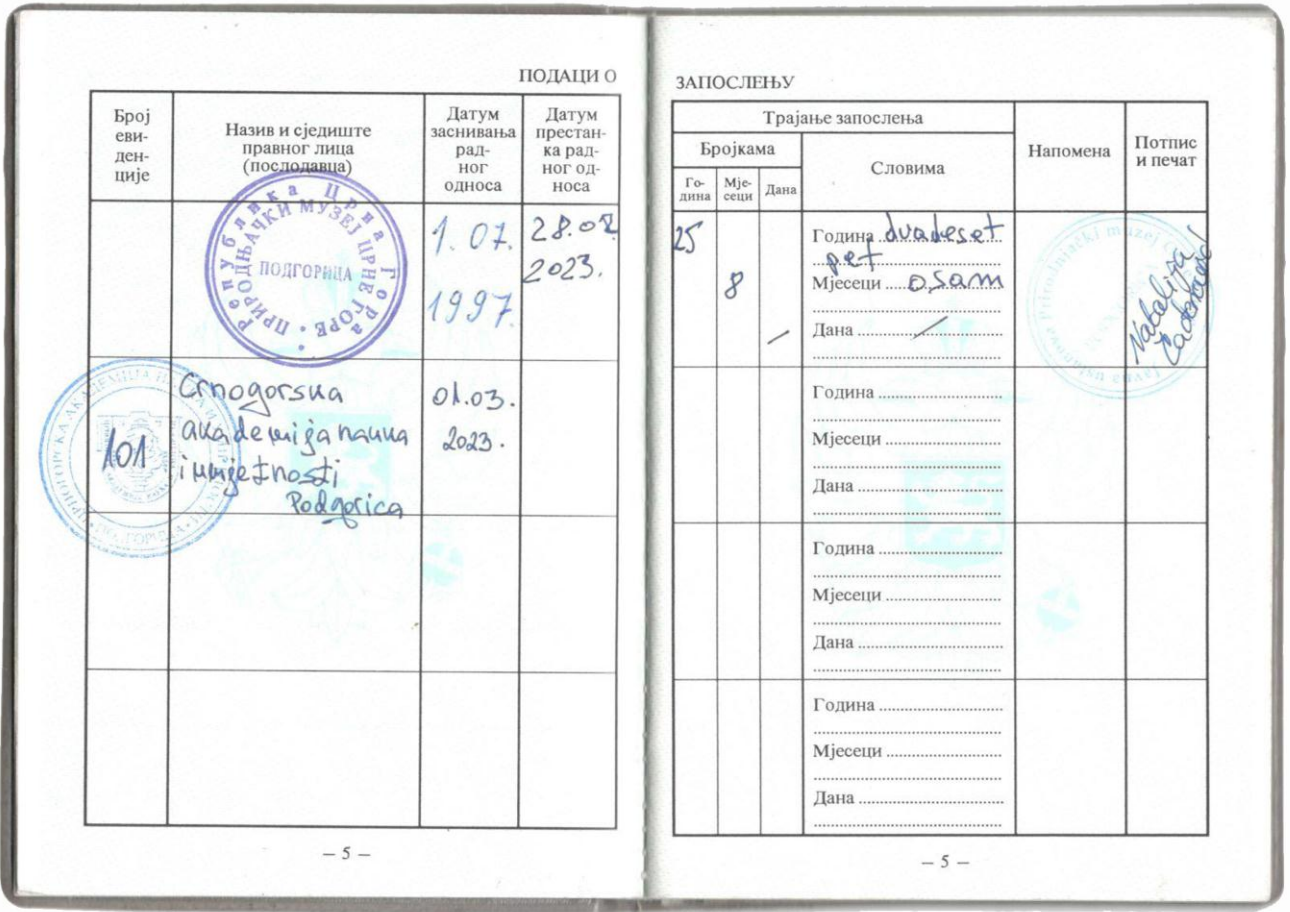 ПОДАЦИ О
Број
еви-
ден-
ције
Назив и сједиште
правног лица
(послодавца)
Датум
заснивања
рад-
ног
односа
Датум
престан-
ка рад-
ног од-
носа
Република Црна Гора
ПРИРОДЊАЧКИ МУЗЕЈ ЦРНЕ ГОРЕ
ПОДГОРИЦА
1. 07.
1997.
28.02
2023.
101
Crnogorska
akademija nauka
i umjetnosti
Podgorica
01.03.
2023.
– 5 –
ЗАПОСЛЕЊУ
Трајање запослења
Бројкама
Го-
дина
Мје-
сеци
Дана
Словима
Напомена
Потпис
и печат
25
8
/
Година dvadeset
pet
Мјесеци osam
Дана /
Prirodnjački muzej
Година
Мјесеци
Дана
Година
Мјесеци
Дана
Година
Мјесеци
Дана
– 5 –